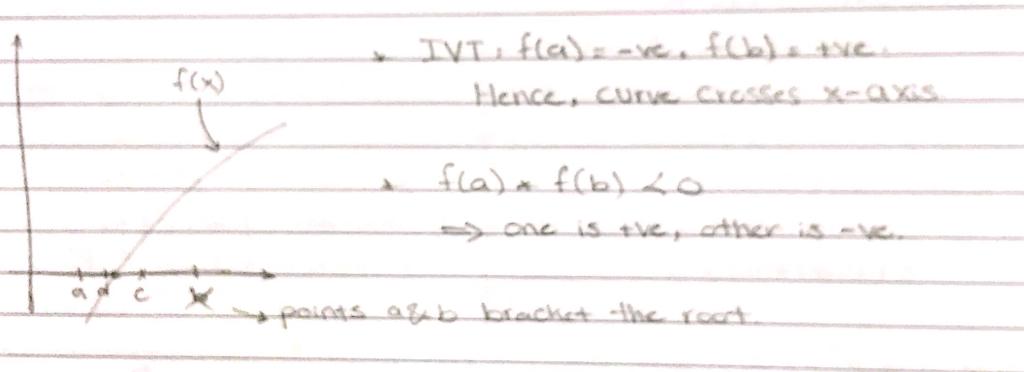 * IVT, f(a) = -ve, f(b) = +ve.
Hence, curve crosses x-axis
f(x)
* f(a) * f(b) < 0
⇒ one is +ve, other is -ve.
a d c
→ points a & b bracket the root.